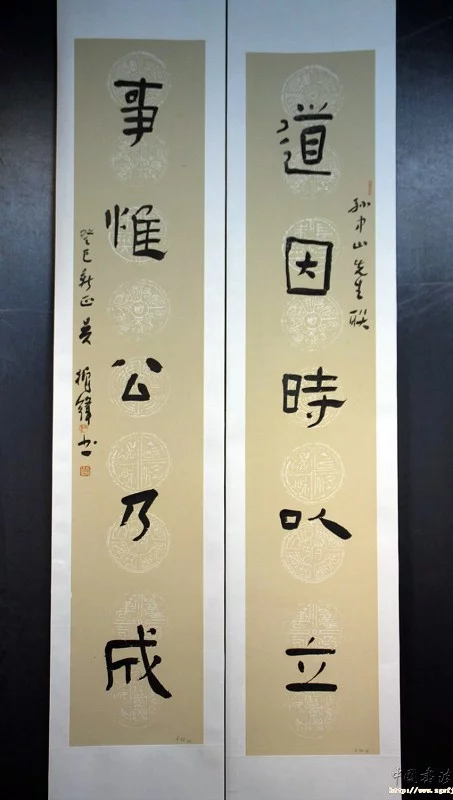 道因時以立
孙中山先生联
事惟公乃成
癸巳新正吴振锋书
中国书法